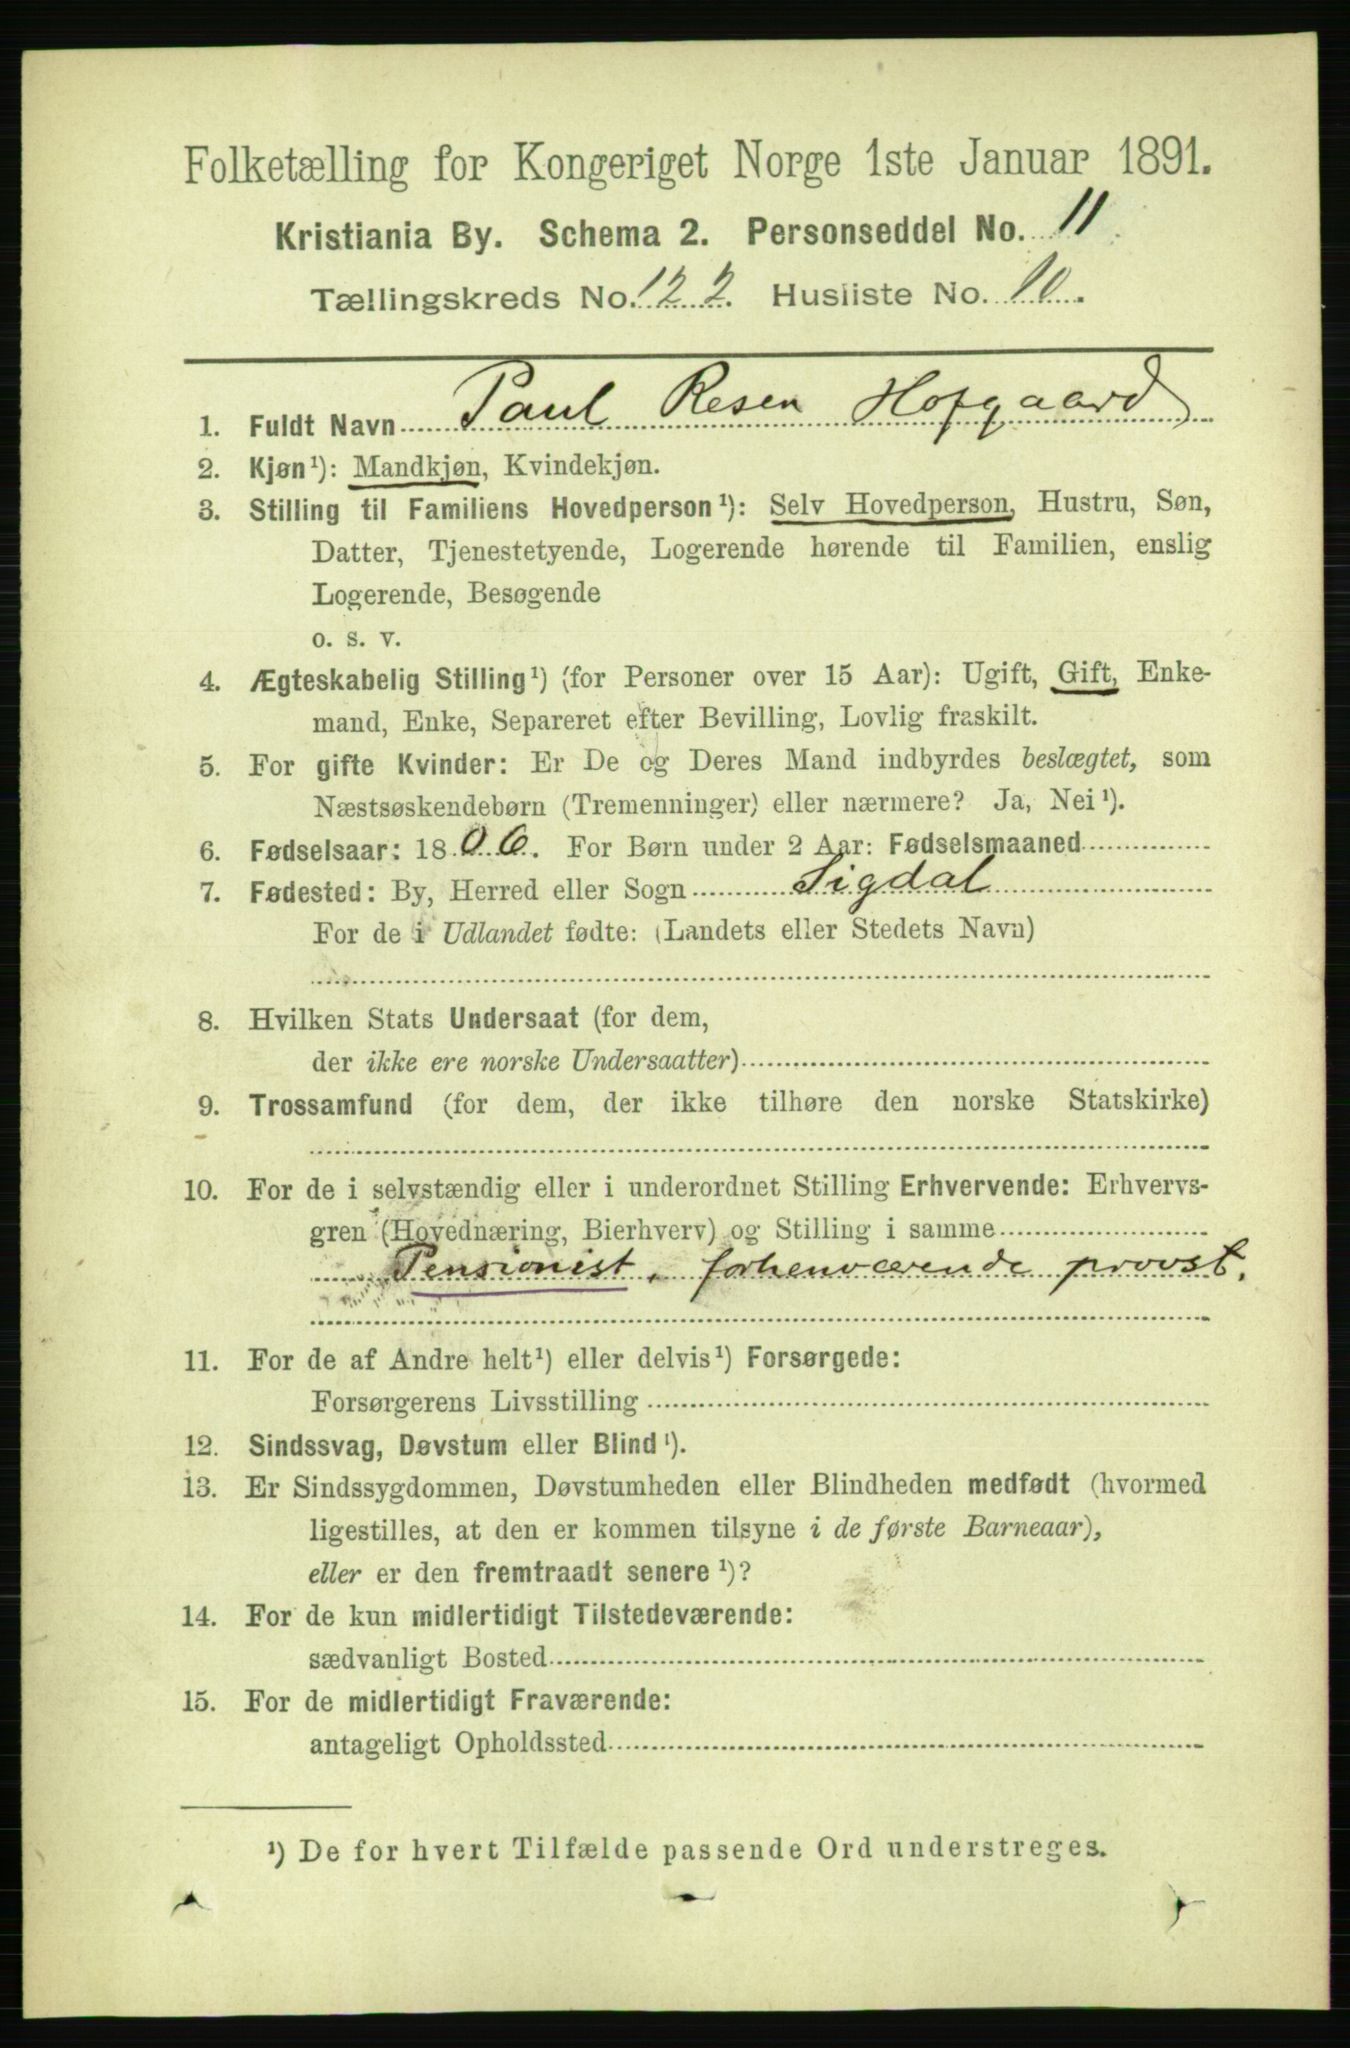 Folketælling for Kongeriget Norge 1ste Januar 1891.
Kristiania By. Schema 2. Personseddel No. 11.
Tællingskreds No. 122. Husliste No. 10.
1. Fuldt Navn Paul Resen Hofgaard
2. Kjøn¹): Mandkjøn, Kvindekjøn.
3. Stilling til Familiens Hovedperson¹): Selv Hovedperson, Hustru, Søn,
Datter, Tjenestetyende, Logerende hørende til Familien, enslig
Logerende, Besøgende
o. s. v.
4. Ægteskabelig Stilling¹) (for Personer over 15 Aar): Ugift, Gift, Enke-
mand, Enke, Separeret efter Bevilling, Lovlig fraskilt.
5. For gifte Kvinder: Er De og Deres Mand indbyrdes beslægtet, som
Næstsøskendebørn (Tremenninger) eller nærmere? Ja, Nei¹).
6. Fødselsaar: 1806. For Børn under 2 Aar: Fødselsmaaned
7. Fødested: By, Herred eller Sogn Sigdal
For de i Udlandet fødte: (Landets eller Stedets Navn)
8. Hvilken Stats Undersaat (for dem,
der ikke ere norske Undersaatter)
9. Trossamfund (for dem, der ikke tilhøre den norske Statskirke)
10. For de i selvstændig eller i underordnet Stilling Erhvervende: Erhvervs-
gren (Hovednæring, Bierhverv) og Stilling i samme
Pensionist, forhenværende provst.
11. For de af Andre helt¹) eller delvis¹) Forsørgede:
Forsørgerens Livsstilling
12. Sindssvag, Døvstum eller Blind¹).
13. Er Sindssygdommen, Døvstumheden eller Blindheden medfødt (hvormed
ligestilles, at den er kommen tilsyne i de første Barneaar),
eller er den fremtraadt senere¹)?
14. For de kun midlertidigt Tilstedeværende:
sædvanligt Bosted
15. For de midlertidigt Fraværende:
antageligt Opholdssted
¹) De for hvert Tilfælde passende Ord understreges.